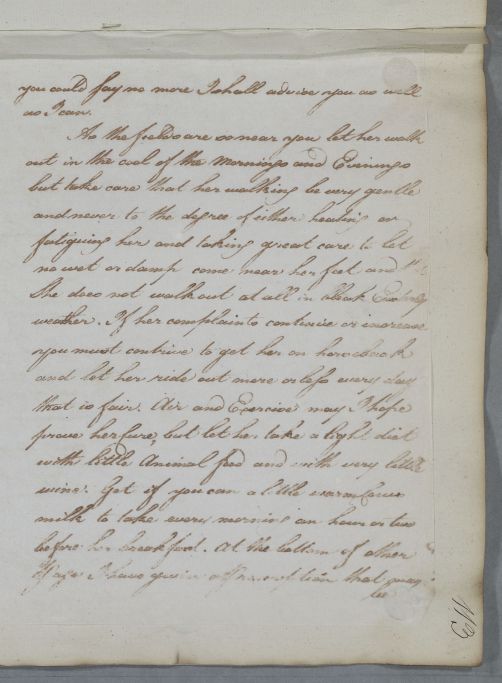 you could say no more I shall advise you as well
as I can.
As the fields are so near you let her walk
out in the cool of the Mornings and Evenings
but take care that her walking be very gentle
and never to the degree of either heating or
fatiguing her and taking great care to let
no wet or damp come near her feet and
She does not walk out at all in bleak Easterly
weather. If her complaints continue or increase
you must contrive to get her on horseback
and let her ride out more or less every day
that is fair. Air and Exercise may I hope
prove her cure but let her take a light diet
with little Animal food and with very little
wine. Get if you can a little warm Cows
milk to take every morning an hour or two
before her breakfast. At the bottom of other
Page I have given a Prescription that may
be